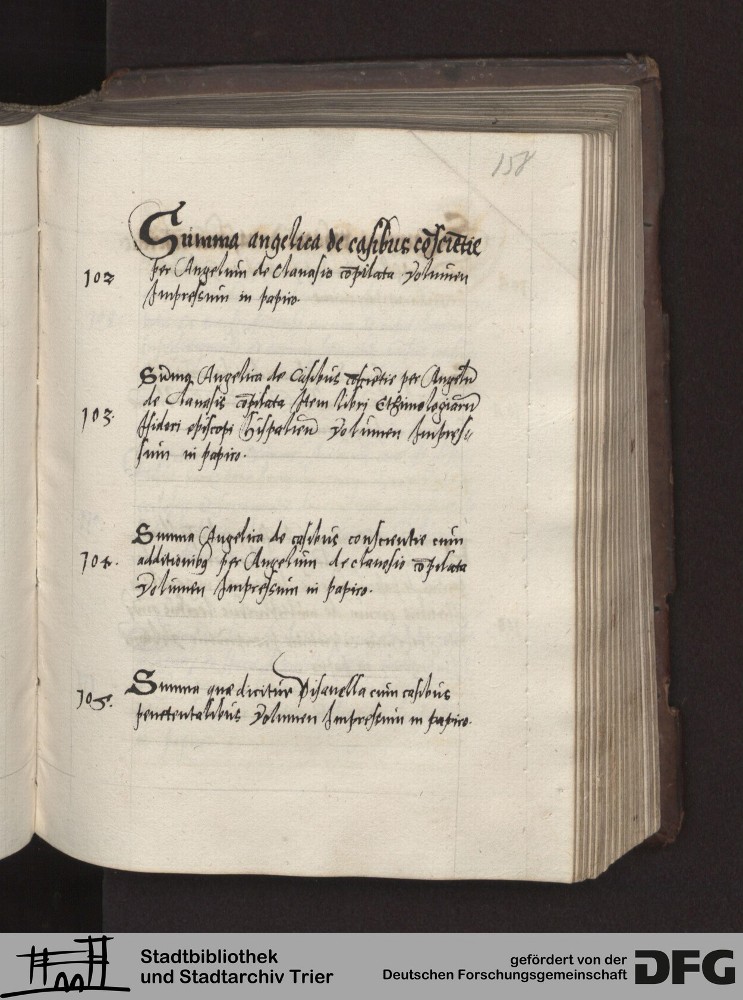 158
Summa angelica de casibus cōsciētie
102
per Angelum de clauasio cōpilata Volumen
Impressum in papiro.
Sūma Angelica de Casibus cōsciētie per Angelū
de clauasis cōpilata Item libri Ethimologiarū
103.
Isideri episcopi Hispalien̄ Volumen Impres-
sum in papiro.
Summa Angelica de casibus conscientie cum
104.
additionibꝯ per Angelum de clauosio cōpilata
Volumen Impressum in papiro.
Summa quæ dicitur Pisanella cum casibus
105.
penetentalibus Volumen Impressum in papiro.
Stadtbibliothek
und Stadtarchiv Trier
gefördert von der
Deutschen Forschungsgemeinschaft
DFG